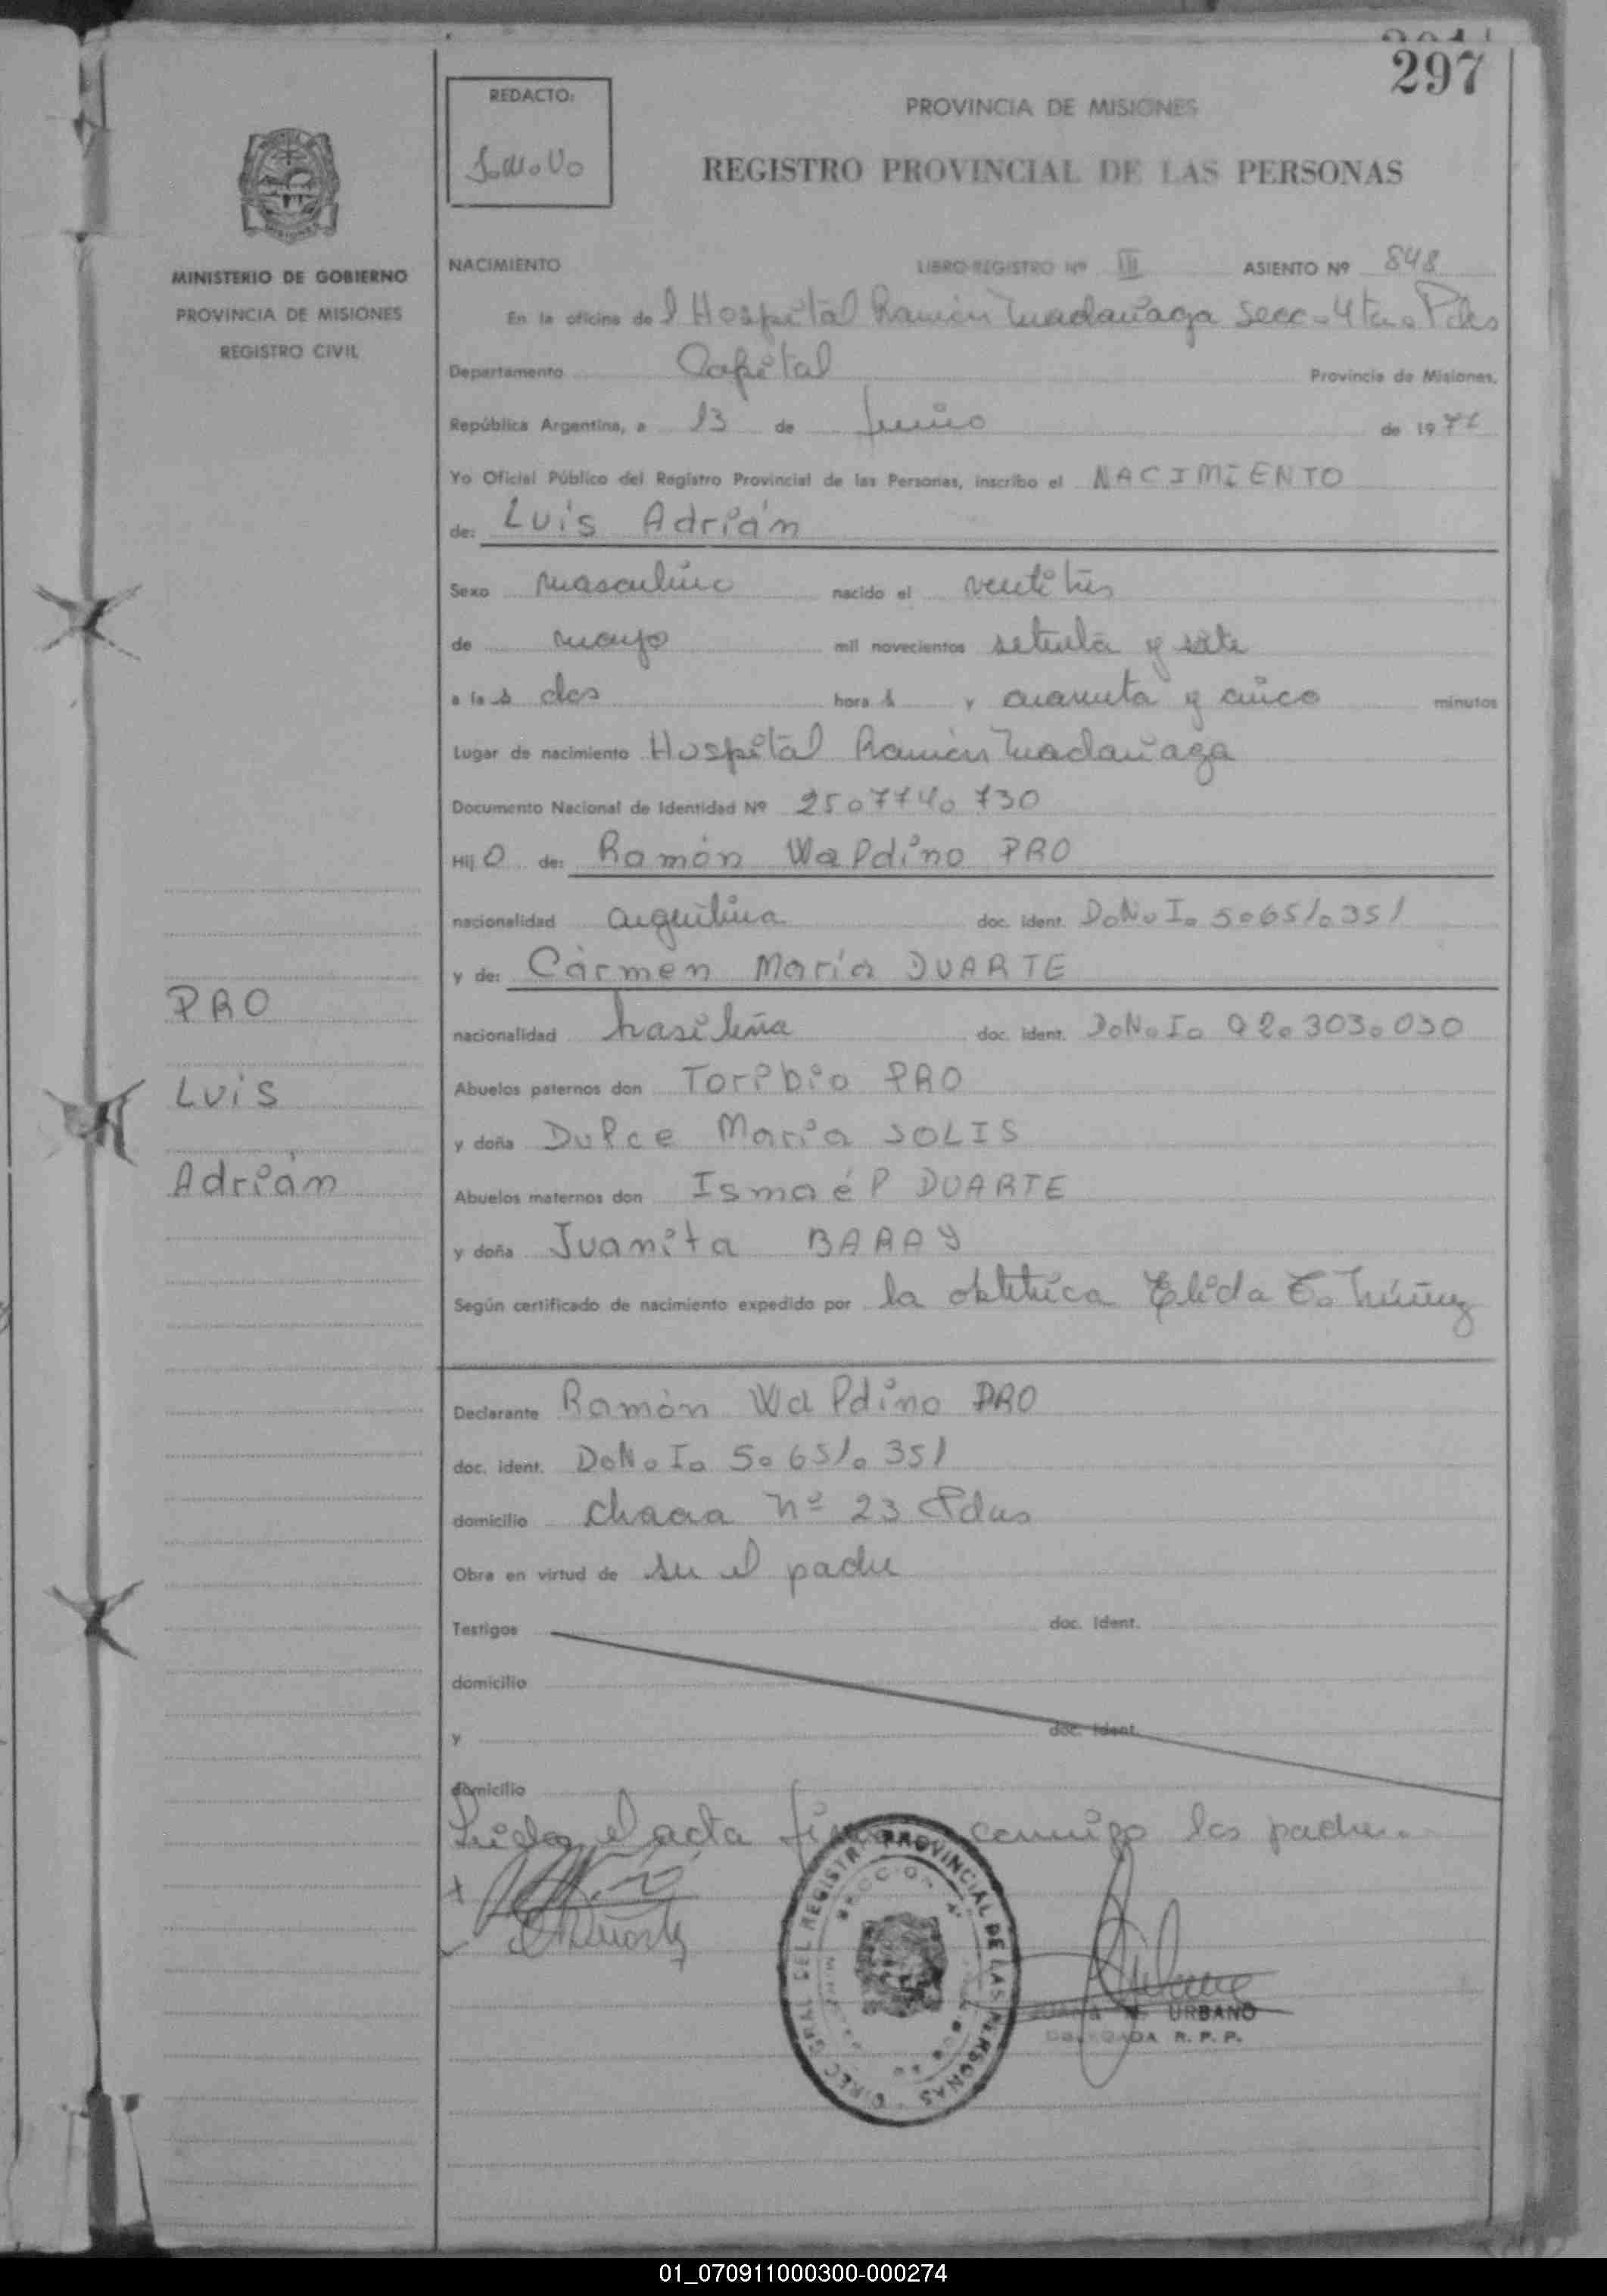 297
REDACTO:
J.M.V.
PROVINCIA DE MISIONES
REGISTRO PROVINCIAL DE LAS PERSONAS
MINISTERIO DE GOBIERNO
PROVINCIA DE MISIONES
REGISTRO CIVIL
NACIMIENTO LIBRO-REGISTRO Nº III ASIENTO Nº 848
En la oficina del Hospital Ramón Madariaga Secc. 4ta. Pdas
Departamento Capital Provincia de Misiones,
República Argentina, a 13 de Junio de 1977
Yo Oficial Público del Registro Provincial de las Personas, inscribo el NACIMIENTO
de: Luis Adrián
Sexo masculino nacido el veintitres
de mayo mil novecientos setenta y siete
a las dos horas y cuarenta y cinco minutos
Lugar de nacimiento Hospital Ramón Madariaga
Documento Nacional de Identidad Nº 25.774.730
Hijo de: Ramón Waldino PRO
nacionalidad argentina doc. ident. D.N.I. 5.651.351
y de: Carmen María DUARTE
nacionalidad brasileña doc. ident. D.N.I. 92.303.030
Abuelos paternos don Toribio PRO
y doña Dulce María SOLIS
Abuelos maternos don Ismaél DUARTE
y doña Juanita BARAY
Según certificado de nacimiento expedido por la obstétrica Elida E. Núñez
PRO
Luis
Adrián
Declarante Ramón Waldino PRO
doc. ident. D.N.I. 5.651.351
domicilio Chacra Nº 23 Pdas
Obra en virtud de ser el padre
Testigos doc. ident.
domicilio
y doc. ident.
domicilio
Leida el acta firman conmigo los padres.
DIREC. GRAL. DEL REGISTRO PROVINCIAL DE LAS PERSONAS
URBANO
DELEGADA R. P. P.
01_070911000300-000274